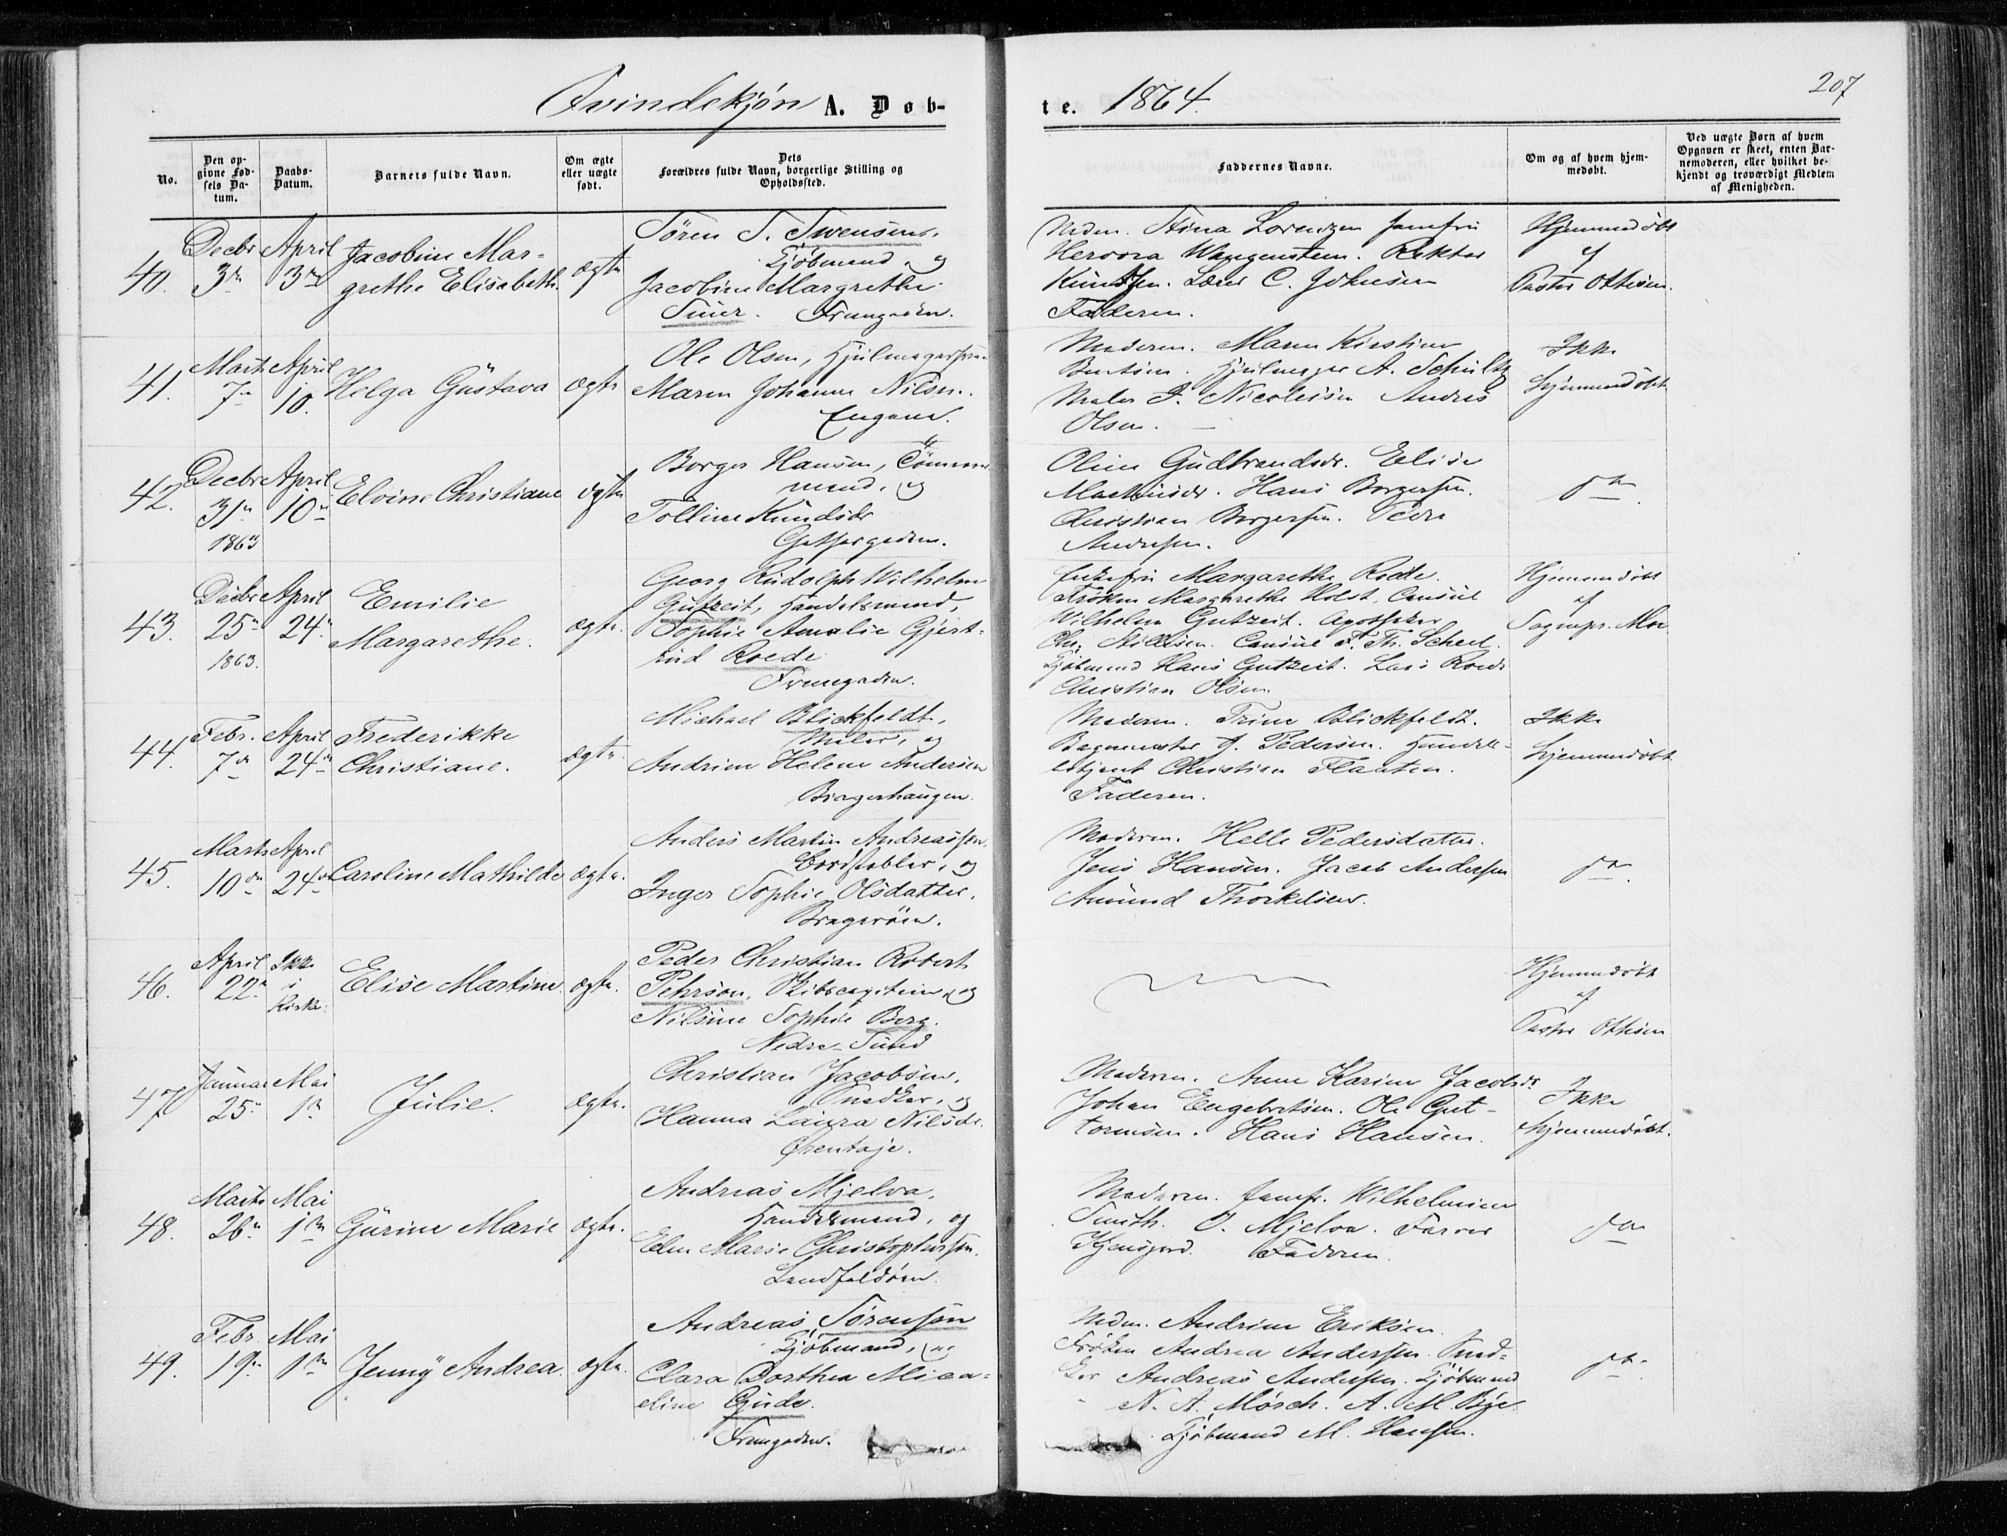 207
Qvindekjøn A. Døb-
te. 1864.
No.
Den op-
givne Fød-
sels Da-
tum.
Daabs-
Datum.
Barnets fulde Navn.
Om ægte
eller uægte
født.
Dets
Forældres fulde Navn, borgerlige Stilling og
Opholdssted.
Faddernes Navne.
Om og af hvem hjem-
medøbt.
Ved uægte Børn af hvem
Opgaven er skeet, enten Bar-
nemoderen, eller hvilket be-
kjendt og troværdigt Medlem
af Menigheden.
40.
Decbr
3die
April
3die
Jacobine Mar-
grethe Elisabeth.
ægte
Søren S. Svensen,
Kjøbmand og
Jacobine Margrethe
Frengaden.
Stina Lorenzen Jomfru
Hervora Wangensteen. Rektor
Knudsen. Lærer C. Johnsen
Faderen.
Hjemmedøbt
af
Pastor Ottesen.
41.
Marts
7de
April
10.
Helga Gustava
ægte
Ole Olsen,
Maren Johanne Nilsen.
Engene.
Moderen. Maren Kirstine
Berntsen. A. Schultz
Maler J. Nicolaisen Andreas
Olsen.
Ikke
hjemmedøbt
42.
Decbr
31te
1863
April
10de
Elvine Christiane
ægte
Borger Hansen, Tømmer-
mand, og
Tolline Knudsdr
Oline Gudbrandsdr. Elise
Hans Borgersen.
Christian Borgersen. Peder
Andresen.
do
43.
Decbr
25de
1863.
April
24.
Emilie
Margarethe.
ægte.
Georg Rudolph Wilhelm
Gutzeit, Handelsmand,
Sophie Amalie Gjert-
rud Roede
Frengaden.
Enkefru Margarethe Roede.
Frøken Margarethe Holst. Consul
Wilhelm Gutzeit. Apotheker
Chr. Nielsen. Consul F. Th. Scheel.
Kjøbmand Hans Gutzeit. Lars Roede
Christian Olsen.
Hjemmedøbt
af
Sognepr. Moe
44.
Febr.
7de
April
24de
Frederikke
Christiane.
ægte.
Michael Blickfeldt,
Maler, og
Andrine Helene Andersen
Bragerhaugen.
Moderen. Trine Blickfeldt.
Bagermester J. Pedersen. Handels-
betjent Christian Flaaten.
Faderen.
Ikke
hjemmedøbt
45.
Marts
10de
April
24de
Caroline Mathilde
ægte.
Anders Martin Andreassen,
og
Inger Sophie Olsdatter,
Bragerøen.
Moderen. Helle Pedersdatter.
Jens Hansen. Jacob Andersen
Amund Thorkelsen.
do
46.
April
22de
Ikke
i
Kirke.
Elise Martine
ægte.
Peder Christian Robert
Pehrson, Skibscapitein, og
Nilsine Sophie Berg.
Nedre Sund
Hjemmedøbt
af
Pastor Ottesen
47
Januar
25de
Mai
1ste
Julie.
ægte.
Christian Jacobsen,
Snedker, og
Hanna Laura Nilsdr.
Øren
Moderen. Anne Karine Jacobsdr
Johan Engebretsen. Ole Gut-
tormsen. Hans Hansen.
Ikke
hjemmedøbt.
48.
Marts
26de
Mai
1ste
Gurine Marie
ægte.
Andreas Mjelva,
Handelsmand, og
Elen Marie Christophersen.
Landfaldøen.
Moderen. Jomfr. Wilhelmine
Smith. O. Mjelva. Farver
Faderen.
do
49.
Febr.
19de
Mai
1ste
Jenny Andrea.
ægte.
Andreas Sørensen
Kjøbmand, og
Clara Dorthea Mica-
eline Gude.
Frengaden.
Andrine Eriksen.
Frøken Andrea Andersen. Sned-
ker Andreas Andersen. Kjøbmand
N. A. Mørch. A. M. Bye.
Kjøbmand M. Hansen.
do